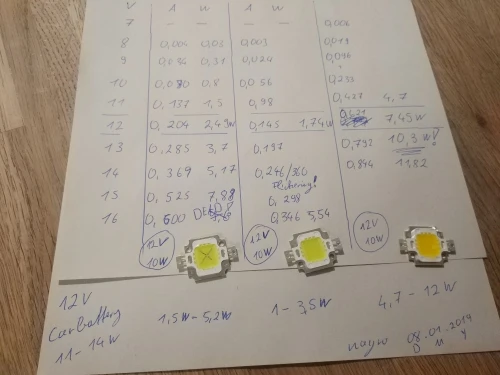 V 1 W 1 W
7 — — — — 0,006
8 0,004 0,03 0,003 0,019
9 0,31 0,024
10 0,8 0,056 0,233
11 0,137 1,5 0,98 0,427 4,7
12 0,204 2,49W 0,145 1,74W 7,45W
13 0,285 3,7 0,197 0,792 10,3W!
14 0,369 5,17 0,246/360 0,844 11,82
Flickering!
15 0,525 7,88 0,298
16 0,600 DEAD 0,346 5,54
12V 10W
12V 10W
12V 10W
12V
Car battery
11-14W
1,5W-5,2W
1-3,5W
4,7-12W
08.01.2019
D M Y